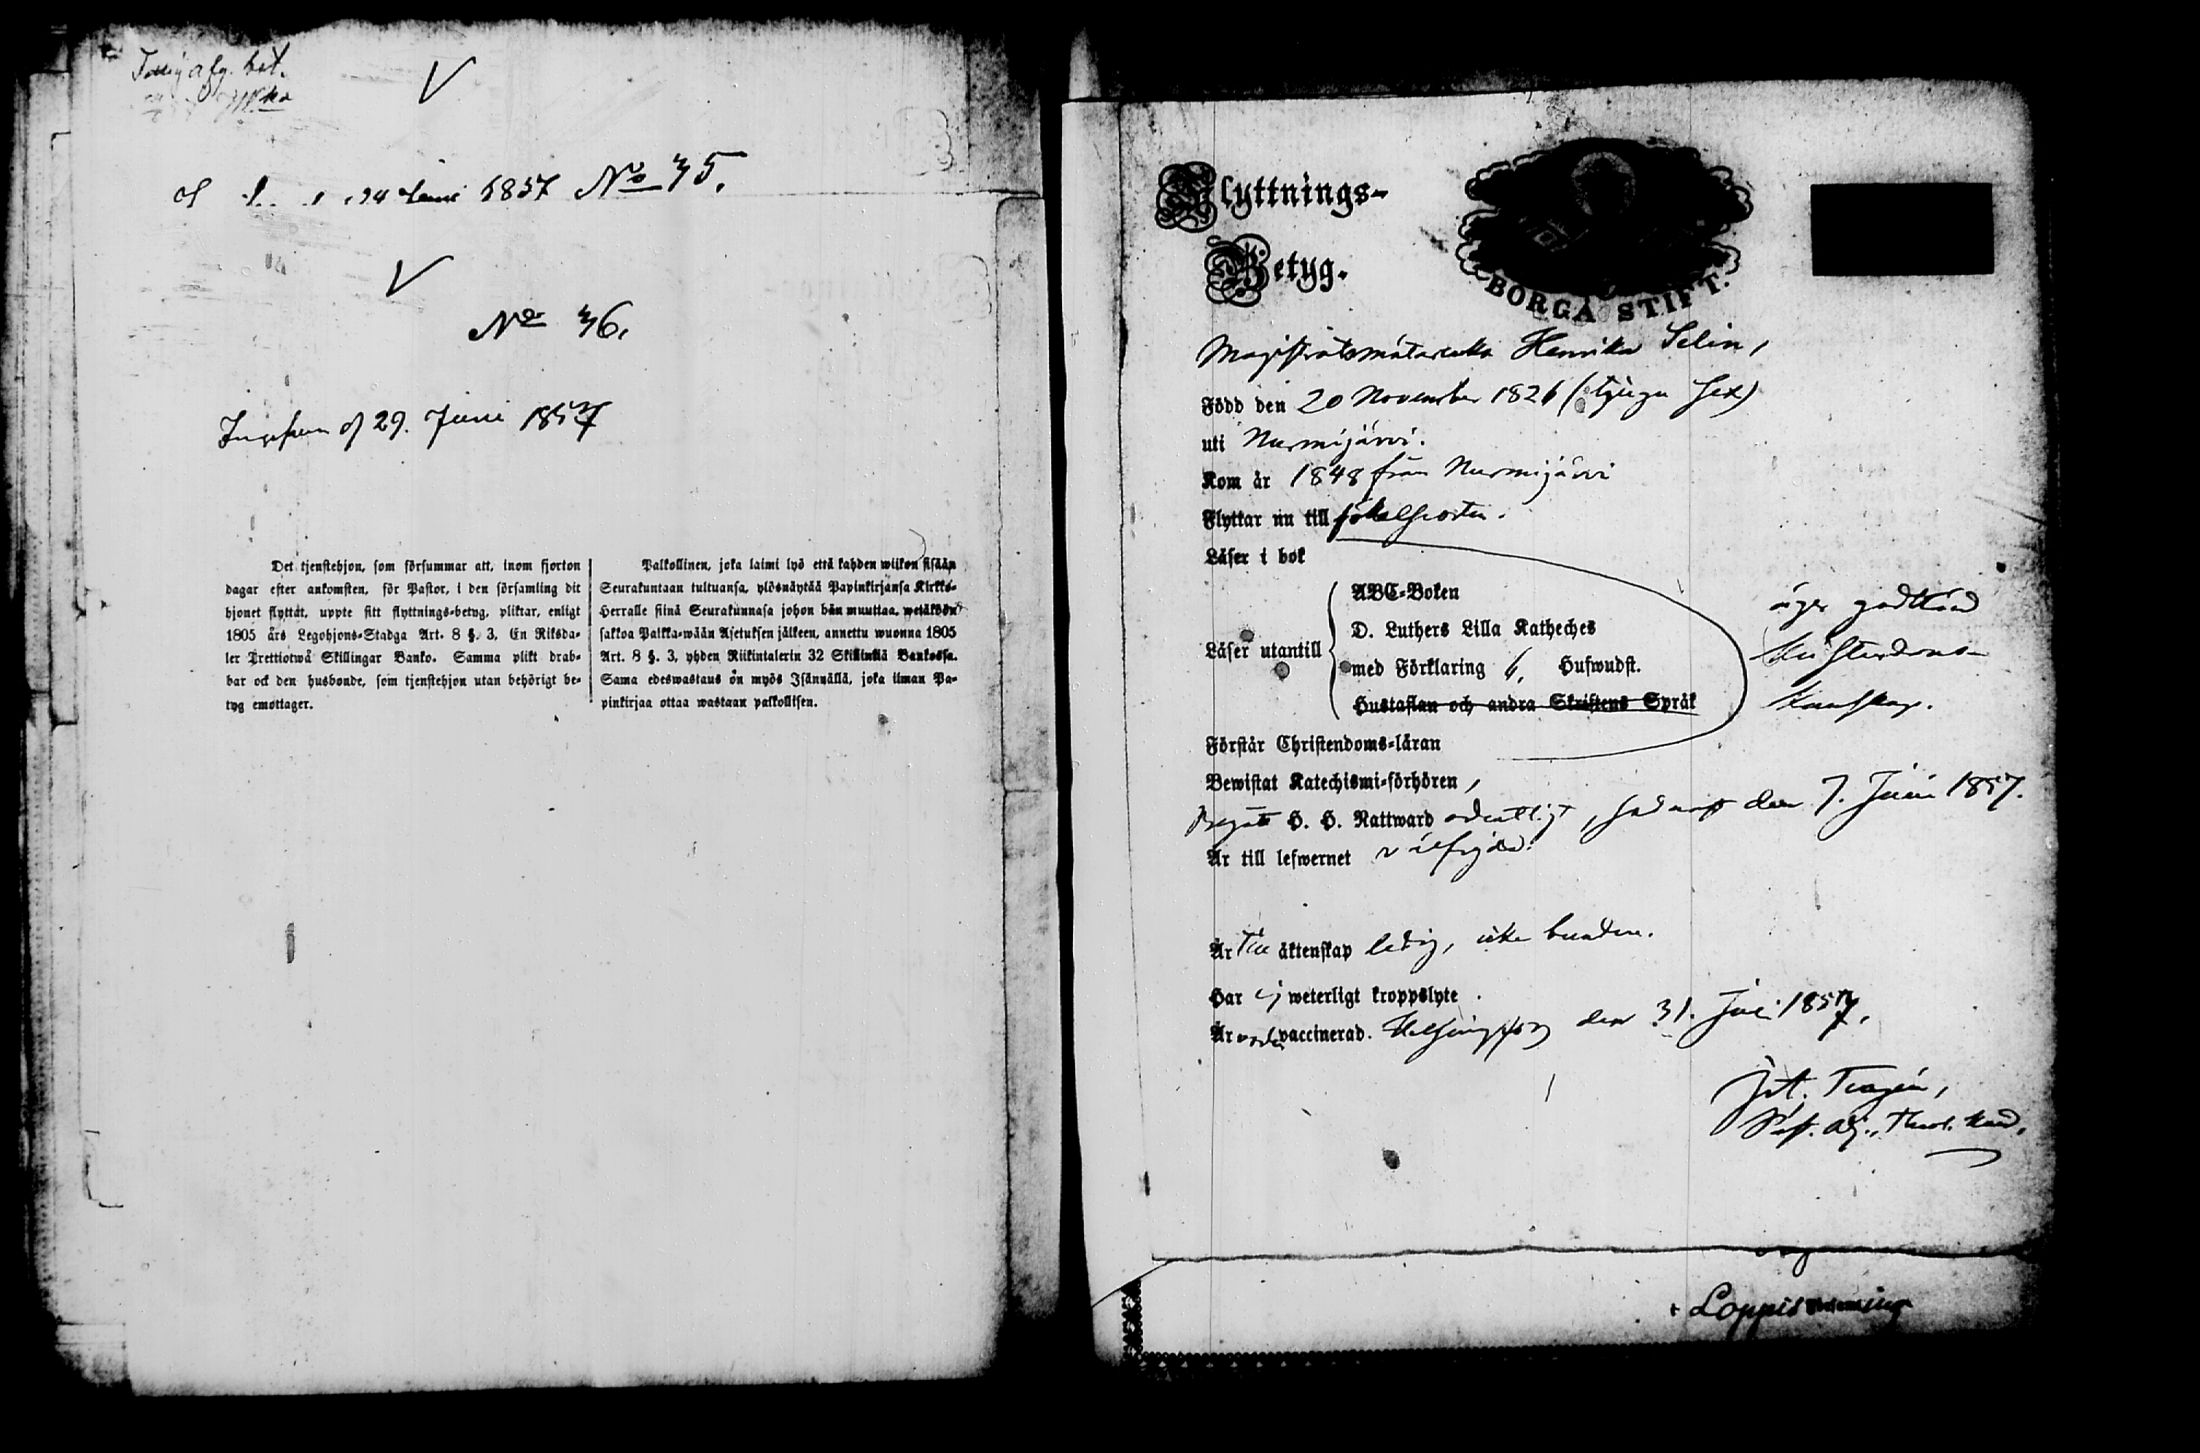 bet.
1857 No 35.
No 36.
29. Juni 1857
Det tjenstehjon, som försummar att, inom fjorton
dagar efter ankomsten, för Pastor, i den församling dit
hjonet flyttat, uppte sitt flyttnings-betyg, pliktar, enligt
1805 års Legohjons-Stadga Art. 8 §. 3, En Riksda-
ler Trettiotwå Skillingar Banko. Samma plikt drab-
bar ock den husbonde, som tjenstehjon utan behörigt be-
tyg emottager.
Palkollinen, joka laimi lyö että kahden wiikon sisään
Seurakuntaan tultuansa, ylösnäytää Papinkirjansa Kirkko-
Herralle siinä Seurakunnasa johon hän muuttaa, wetäköön
sakkoa Palkka-wään Asetuksen jälkeen, annettu wuonna 1805
Art. 8 §. 3, yhden Riikintalerin 32 Skillinkiä Bankossa.
Sama edeswastaus on myös Isännällä, joka ilman Pa-
pinkirjaa ottaa wastaan palkollisen.
Flyttnings-
Betyg.
BORGÅ STIFT.
Henrika Selin,
Född den 20 November 1826 (tjugu sex)
uti Nurmijärvi.
Kom år 1848 från Nurmijärvi
Flyttar nu till
Läser i bok
Läser utantill
ABC-Boken
D. Luthers Lilla Katheches
med Förklaring 6. Hufwudst.
Hustaflan och andra Skriftens Språk
äger godkänd
Christendoms-
kunskap.
Förstår Christendoms-läran
Bewistat Katechismi-förhören,
Begått H. H. Nattward ordentligt, den 7. Juni 1857.
Är till lefwernet välfrejdad.
Är till äktenskap ledig, icke bunden.
Har ej weterligt kroppslyte.
Är vaccinerad. Helsingfors den 31. 1857.
Loppis